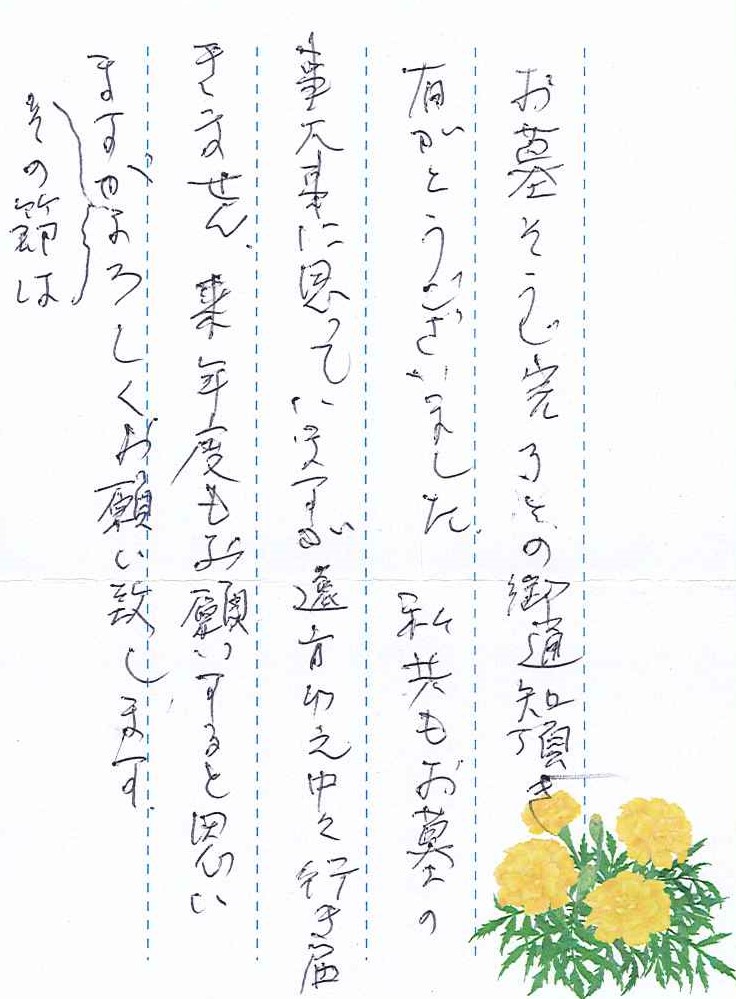 お墓そうじ完了との御通知頂き
有がとうございました。私共もお墓の
事大事に思っていますが遠方ゆえ中々行き届
きません。来年度もお願いすると思い
ますがよろしくお願い致します。
その節は